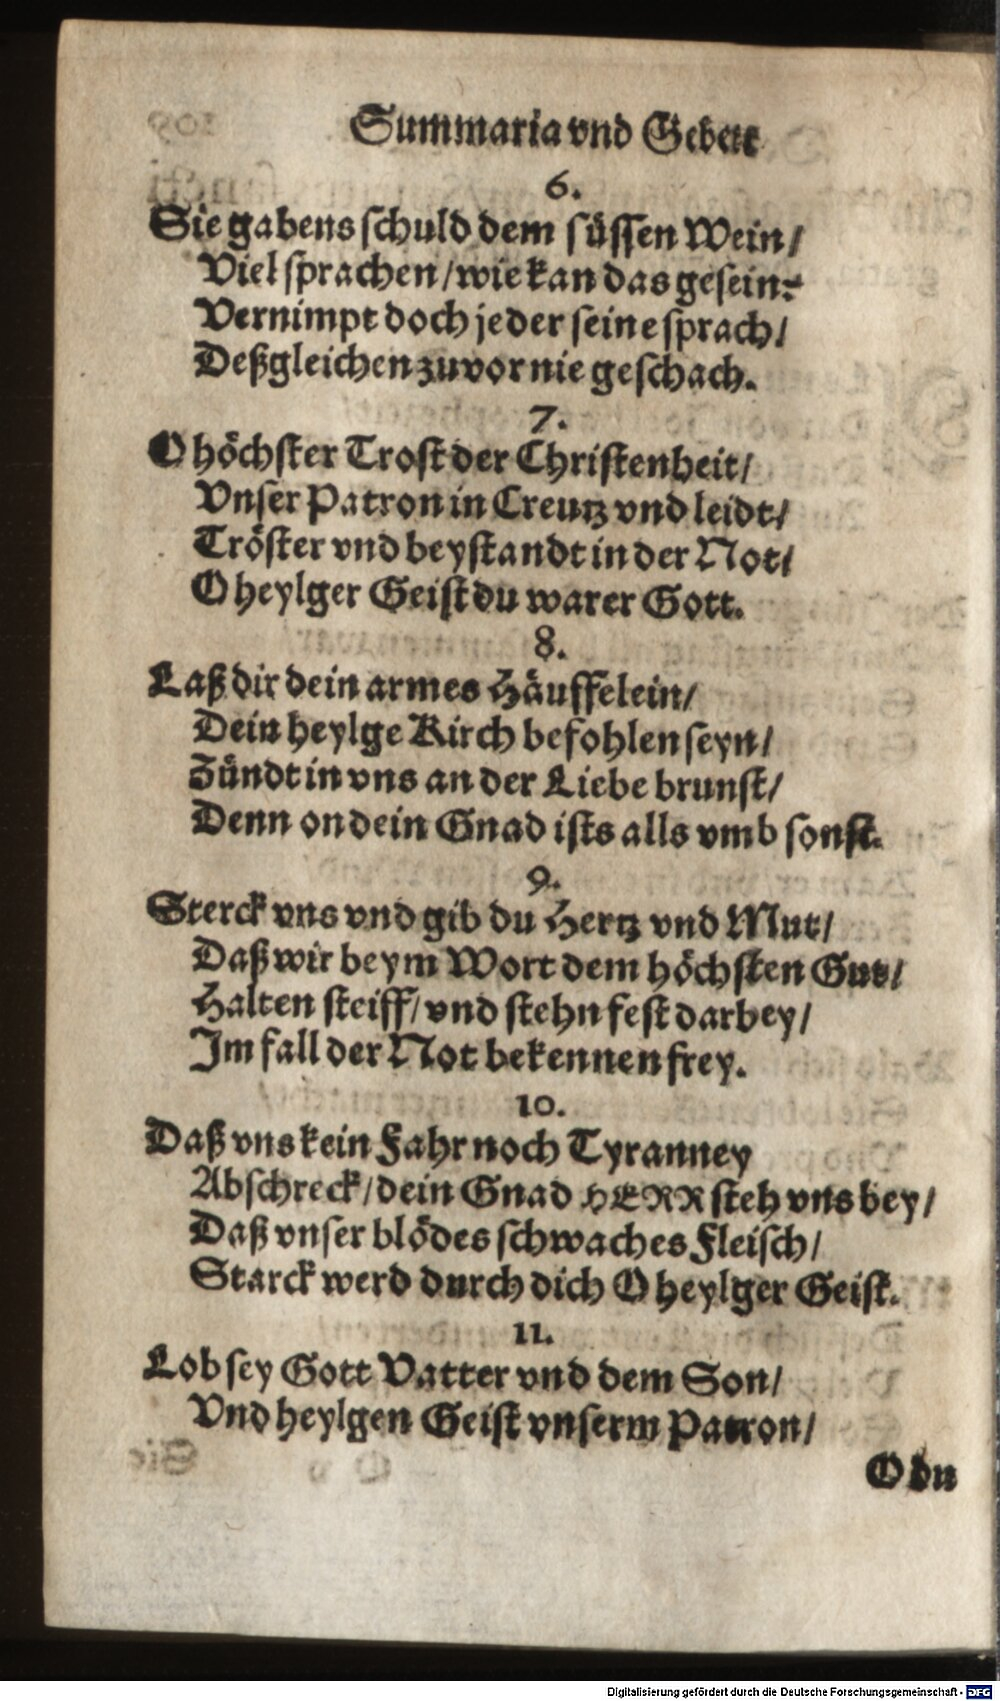 Summaria vnd Gebett
6.
Sie gabens schuld dem süssen Wein/
Viel sprachen/ wie kan das gesein?
Vernimpt doch jeder seine sprach/
Deßgleichen zuvor nie geschach.
7.
O höchster Trost der Christenheit/
Vnser Patron in Creutz vnd leidt/
Tröster vnd beystandt in der Not/
O heylger Geist du warer Gott.
8.
Laß dir dein armes Häuffelein/
Dein heylge Kirch befohlen seyn/
Zündt in vns an der Liebe brunst/
Denn on dein Gnad ists alls vmb sonst.
9.
Sterck vns vnd gib du Hertz vnd Mut/
Daß wir beym Wort dem höchsten Gut/
Halten steiff/ vnd stehn fest darbey/
Im fall der Not bekennen frey.
10.
Daß vns kein Fahr noch Tyranney
Abschreck/ dein Gnad HERR steh vns bey/
Daß vnser blödes schwaches Fleisch/
Starck werd durch dich O heylger Geist.
11.
Lob sey Gott Vatter vnd dem Son/
Vnd heylgen Geist vnserm Patron/
O du
Digitalisierung gefördert durch die Deutsche Forschungsgemeinschaft - DFG